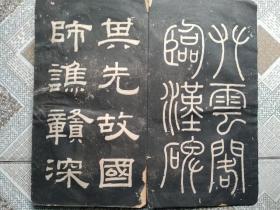 雲閣
臨漢碑
其先故國
師譙贛深